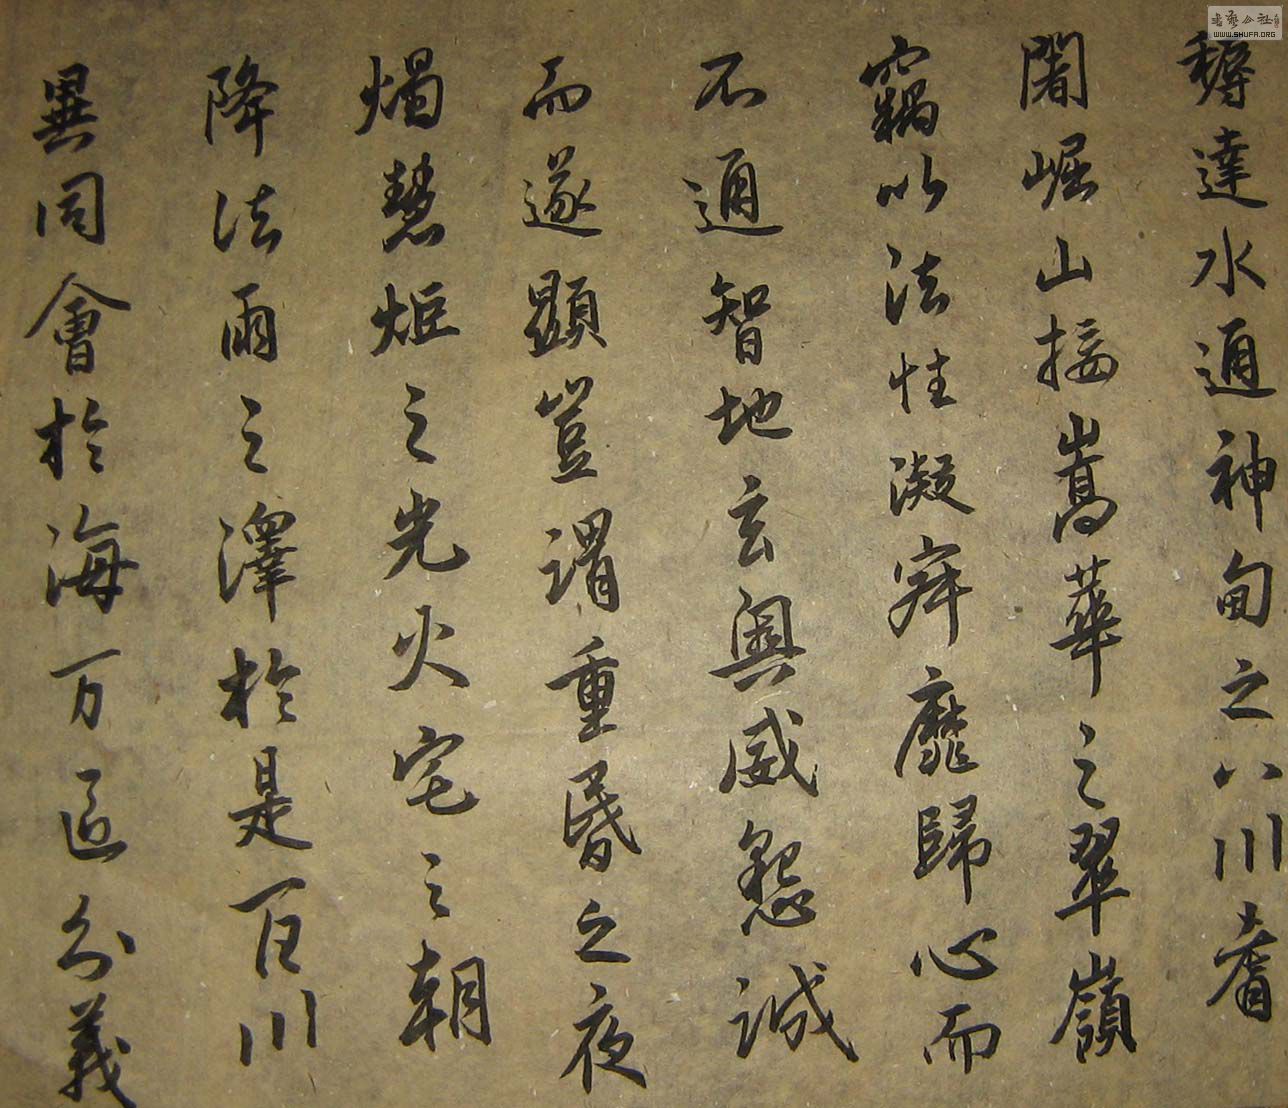 耨達水通神甸之八川耆
闍崛山接嵩華之翠嶺
竊以法性凝寂靡歸心而
不通智地玄奥感懇誠
而遂顯豈謂重昏之夜
燭慧炬之光火宅之朝
降法雨之澤於是百川
異同會於海万區分義
書藝公社
WWW.SHUFA.ORG